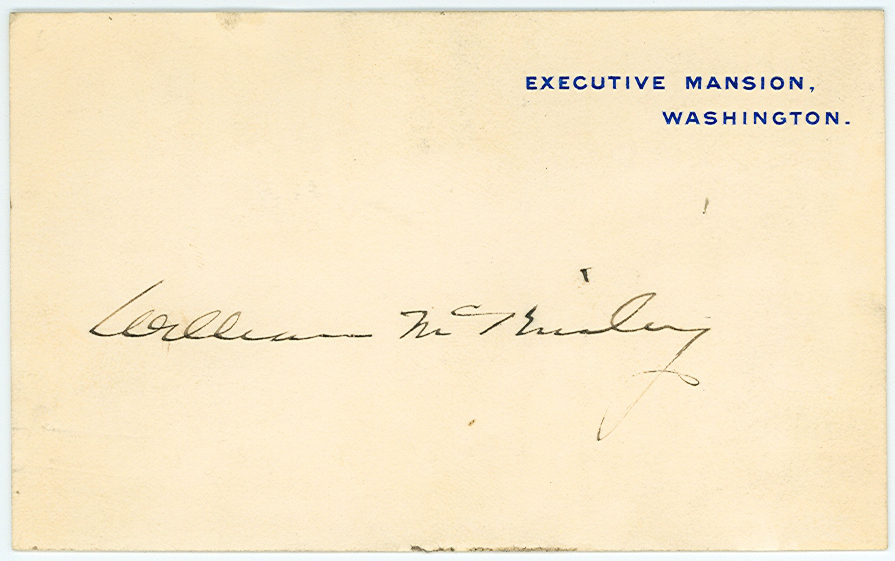 EXECUTIVE MANSION,
WASHINGTON.
William McKinley